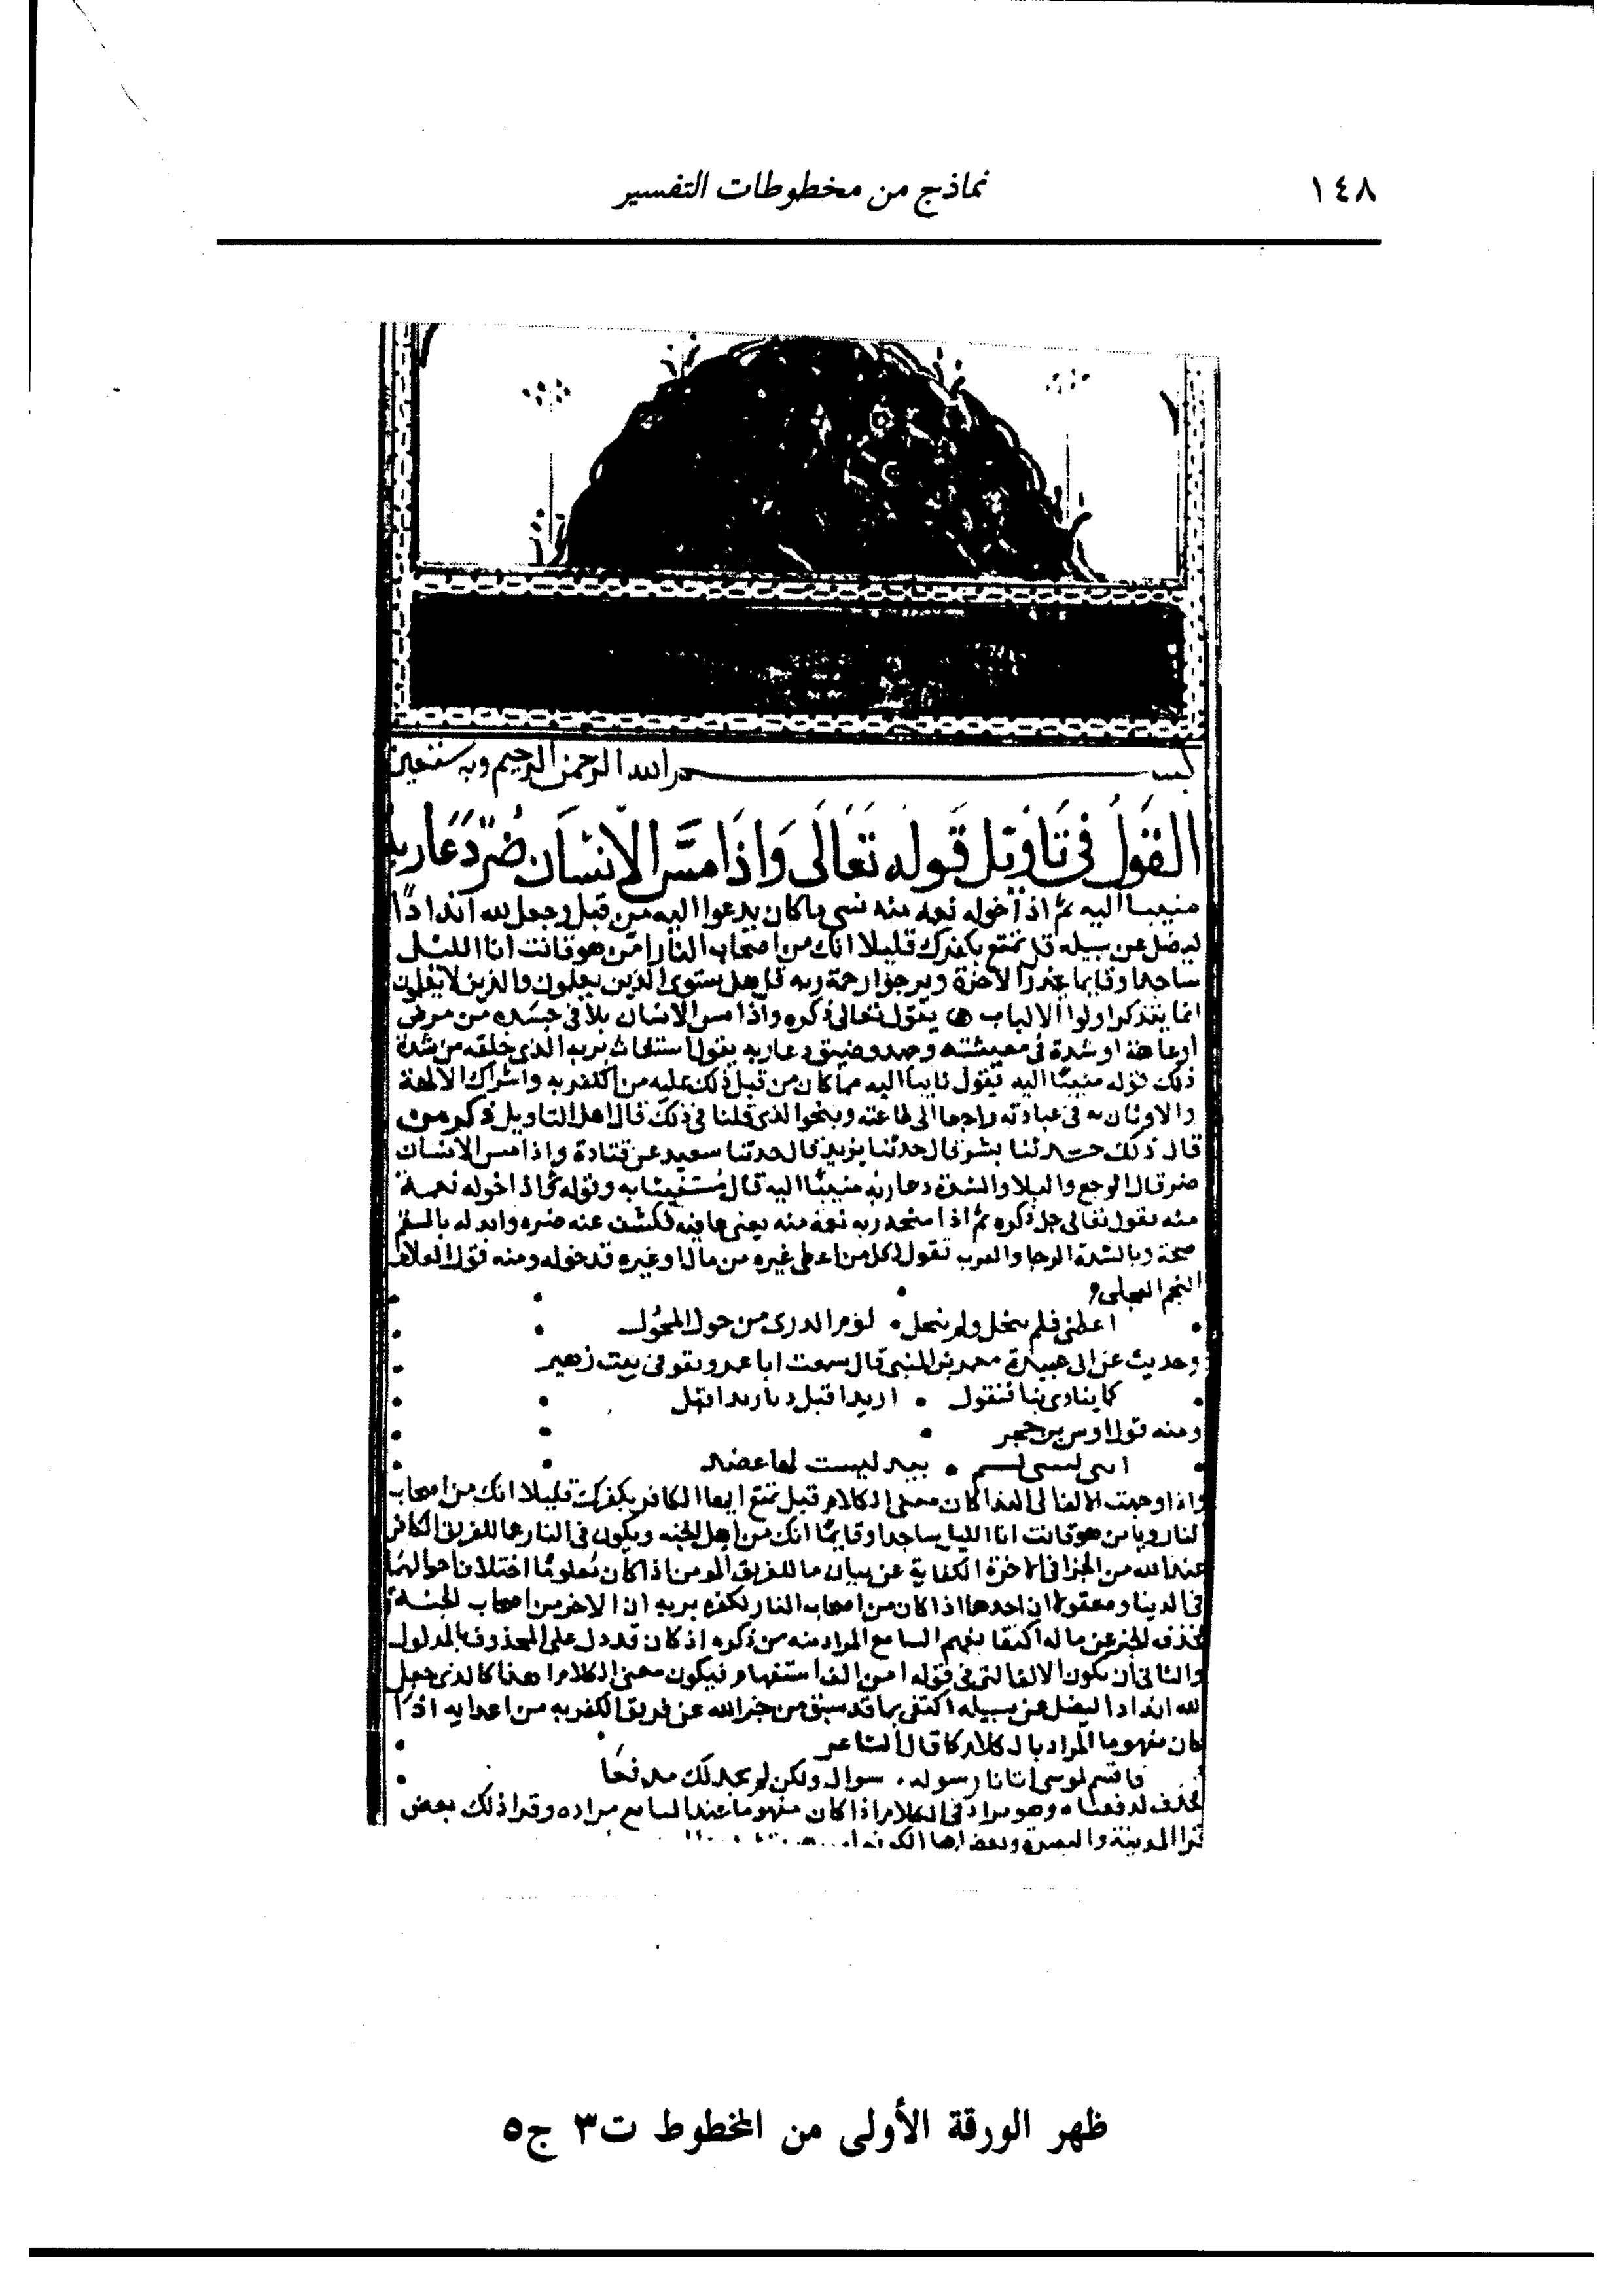 ١٤٨
نماذج من مخطوطات التفسير
بسم الله الرحمن الرحيم وبه نستعين
القَولُ في تَاويل قَوله تَعَالَى وَاذَا مَسَّ الاِنسَان ضُرّ دَعَا ربه
منيبا اليه ثم اذا خوله نعمة منه نسي ما كان يدعوا اليه من قبل وجعل لله اندادًا
ليضل عن سبيله قل تمتع بكفرك قليلا انك من اصحاب النار امن هو قانت انا الليل
ساجدا وقايما يحذر الاخرة ويرجوا رحمة ربه قل هل يستوي الذين يعلمون والذين لا يعلمون
انما يتذكر اولوا الالباب يقول تعالى ذكره واذا مس الانسان بلا في جسده من مرض
او عاهة او شدة في معيشته وجهد وضيق دعا ربه يقول استغاث بربه الذي خلقه من شدة
ذلك قوله منيبًا اليه يقول تايبا اليه مما كان من قبل ذلك عليه من الكفر به واشراك الالهة
والاوثان به في عبادته راجعا الى طاعته وبنحوا الذي قلنا في ذلك قال اهل التاويل ذكر من
قال ذلك حدثنا بشر قال حدثنا يزيد قال حدثنا سعيد عن قتادة واذا مس الانسان
ضر قال الوجع والبلا والشدة دعا ربه منيبًا اليه قال مستغيثا به وقوله ثم اذا خوله نعمة
منه يقول تعالى جل ذكره ثم اذا منحه ربه نعمة منه يعني عافية فكشف عنه ضره وابدله بالسقم
صحة وبالشدة الرخا والعرب تقول لكل من اعطى غيره من مال او غيره قد خوله ومنه قول
النجم العجلي
اعطى فلم يبخل ولم يبخل كوم الذرى من خول المخول
وحديث عن ابي عبيدة معمر بن المثني قال سمعت ابا عمرو يقو في بيت زهير
ومنه قول اوس بن حجر
بيد ليست لها عضد
واذا وجهت الالف الى الندا كان معنى الكلام قيل تمتع ايها الكافر بكفرك قليلا انك من اصحاب
النار ويا من هو قانت انا الليل ساجدا وقايمًا انك من اهل الجنة ويكون في النار عما للفريق الكافر
عند الله من الجزا في الاخرة الكفاية عن بيان ما للفريق المومن اذ كان معلومًا اختلاف احوالهما
في الدينا ومعقولا ان احدهما اذا كان من اصحاب النار لكفره بربه ان الاخر من اصحاب الجنة
فحذف الخبر عن ما له اكتفا بفهم السامع المراد منه من ذكره اذ كان قد دل على المحذوف بالمدلول
والثاني ان يكون الالف التي في قوله امن الف استفهام فيكون معنى الكلام اهذا كالذي جعل
لله اندادا ليضل عن سبيله اكتفى بما قد سبق من خبر الله عن فريق الكفر به من اعدايه اذ
كان مفهوما المراد بالكلام كما قال الشاعر
فاقسم لو سى اتانا رسوله سواك ولكن لم نجد لك مدفعا
فحذف لدفعناه وهو مراد في الكلام اذا كان مفهوما عند السامع مراده وقرا ذلك بعض
قرا المدينة والبصرة وبعض اهل الكوفة
ظهر الورقة الأولى من المخطوط ت٣ ج٥